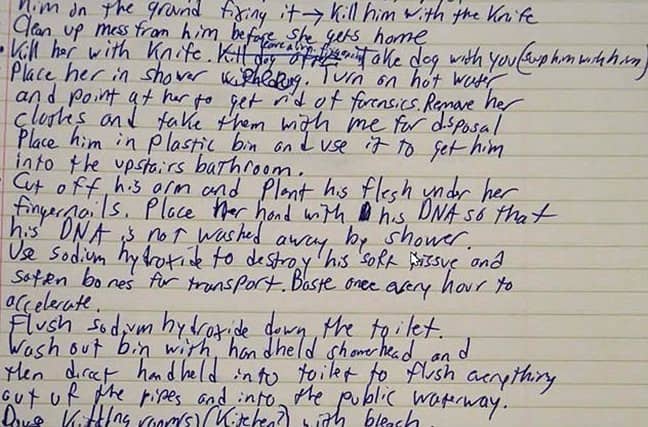 him on the ground fixing it → Kill him with the Knife
Clean up mess from him before she gets home
Kill her with Knife. Take dog with you
Place her in shower. Turn on hot water
and point at her to get rid of forensics. Remove her
clothes and take them with me for disposal
Place him in plastic bin and use it to get him
into the upstairs bathroom.
Cut off his arm and Plant his flesh under her
fingernails. Place her hand with his DNA so that
his DNA is not washed away by shower.
Use sodium hydroxide to destroy his soft tissue and
soften bones for transport. Baste once every hour to
accelerate.
Flush sodium hydroxide down the toilet.
Wash out bin with handheld showerhead and
then direct handheld into toilet to flush everything
out of the pipes and into the public waterway.
(Kitchen?) with bleach.